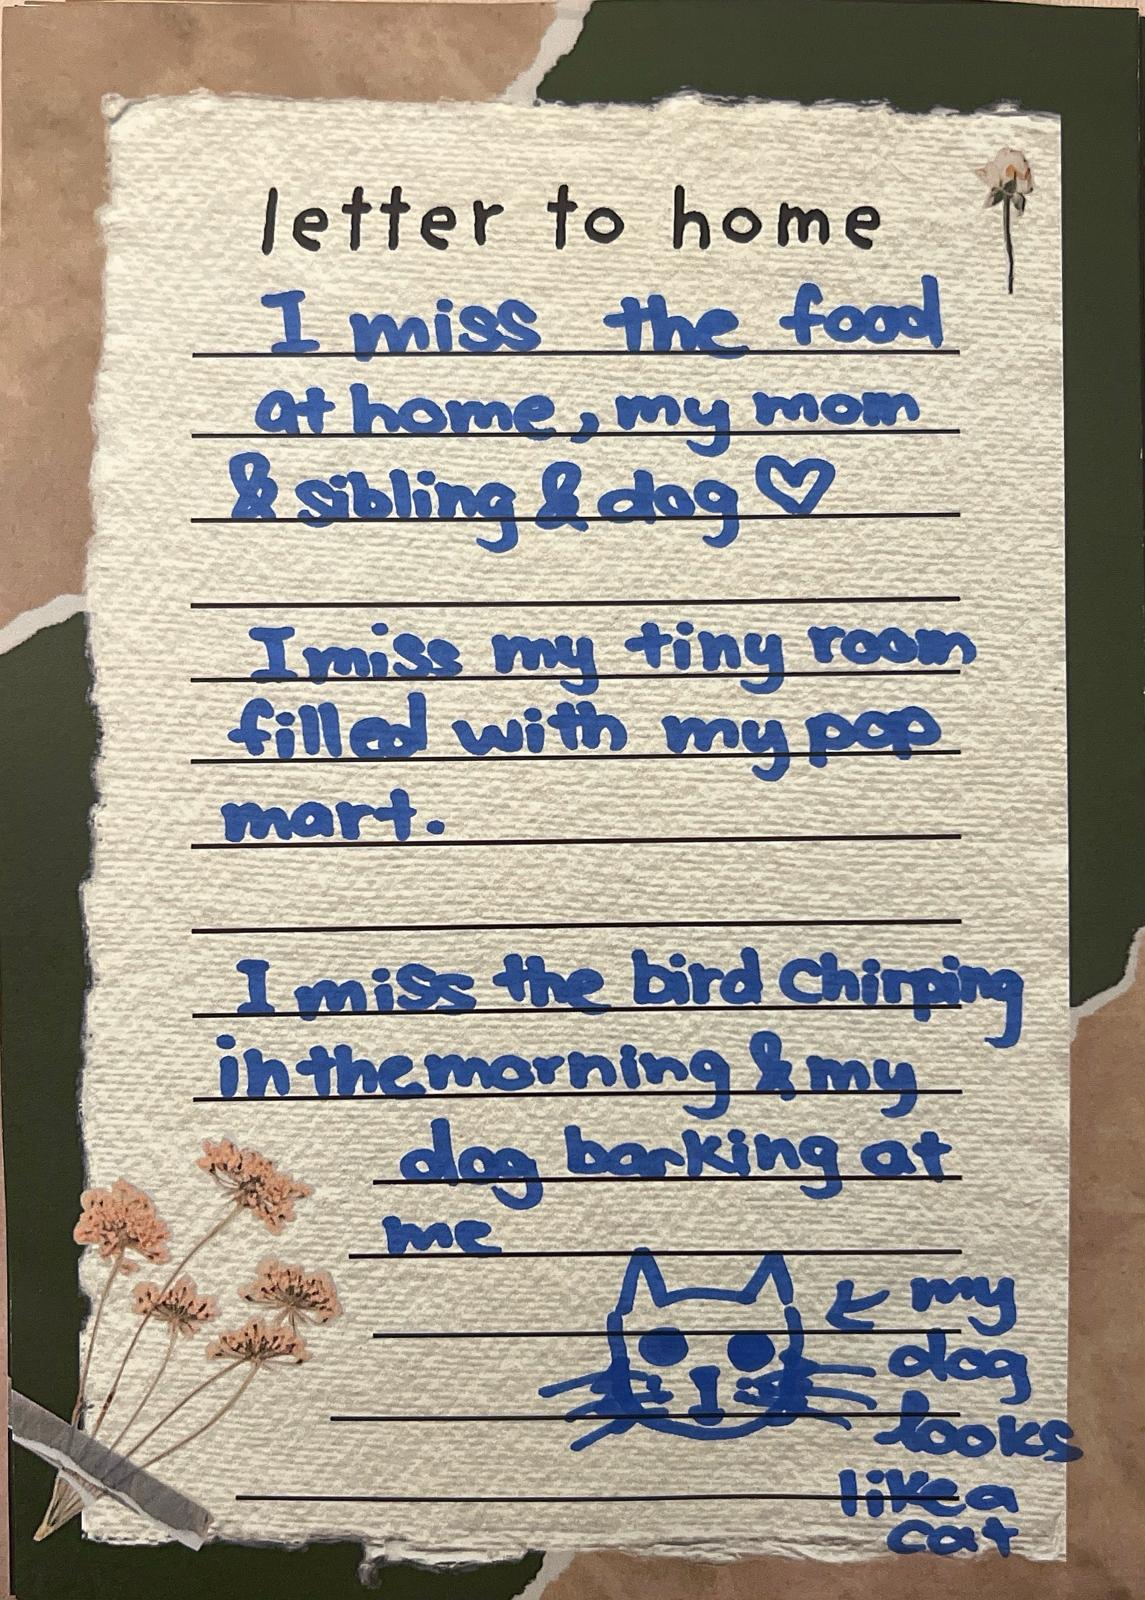 letter to home
I miss the food
at home, my mom
& sibling & dog ♡
I miss my tiny room
filled with my pop
mart.
I miss the bird Chirping
in the morning & my
dog barking at
me
my
dog
looks
like a
cat